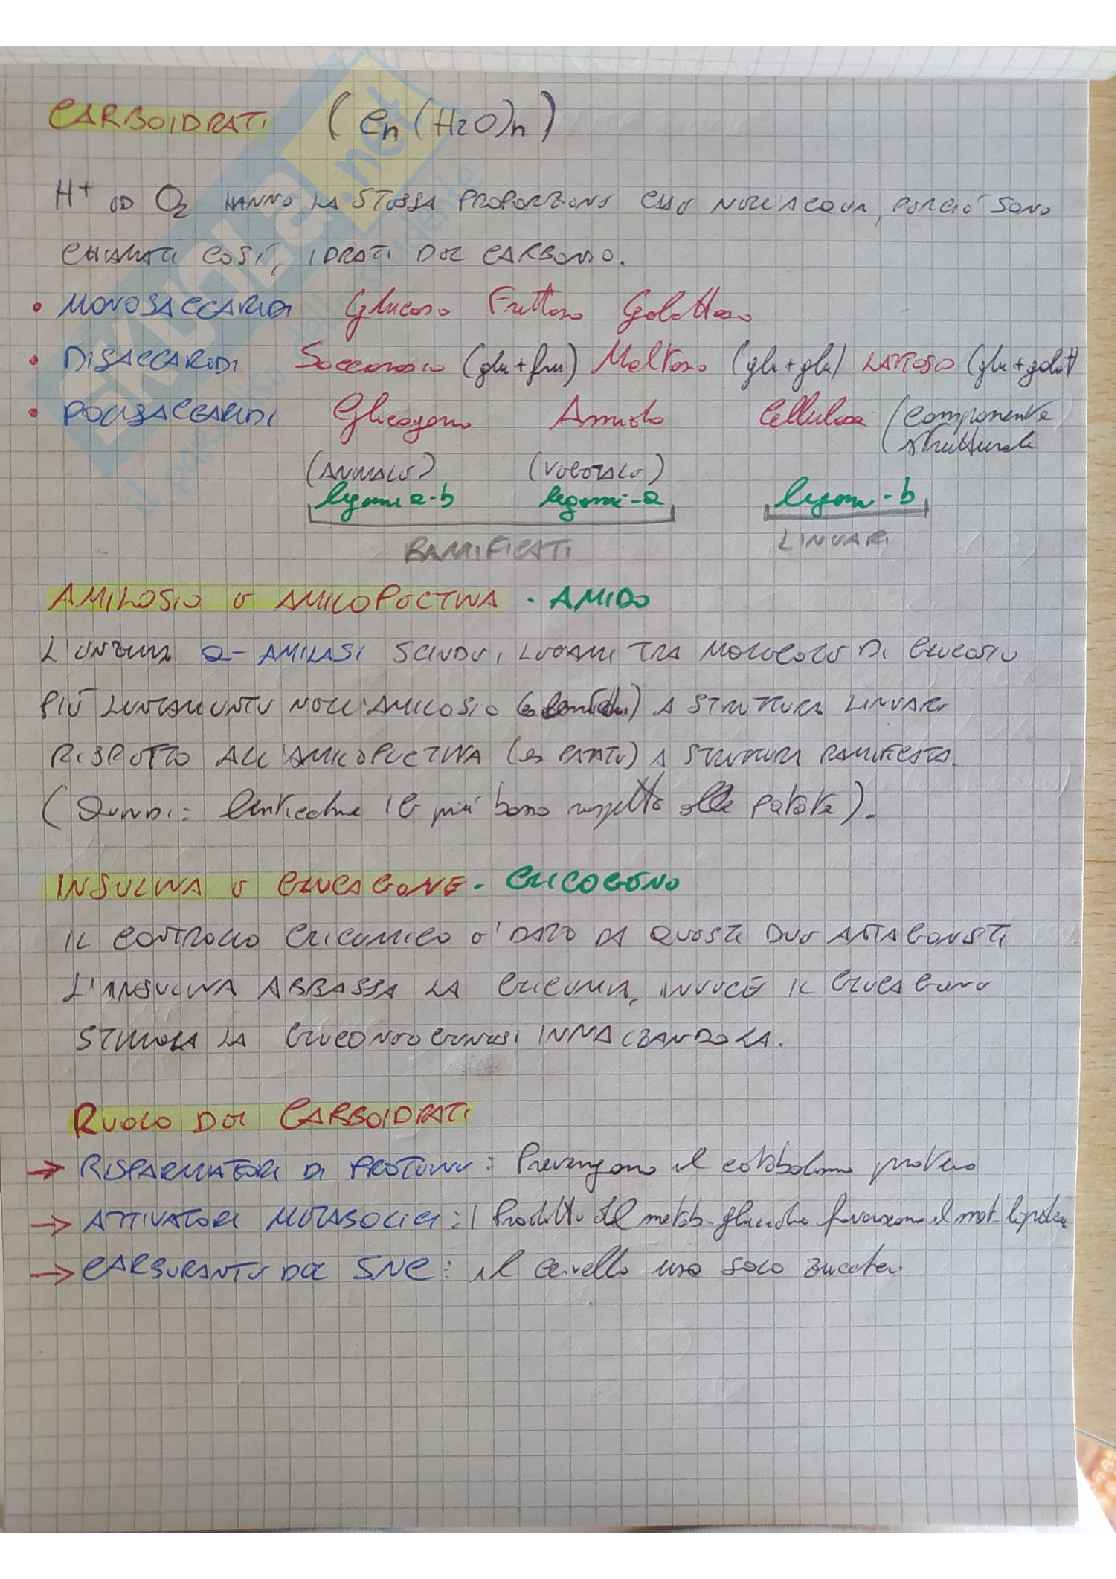 CARBOIDRATI (Cn(H2O)n)
H+ ED O2 HANNO LA STESSA PROPORZIONE CHE NELL'ACQUA, PERCIÒ SONO
CHIAMATI COSÌ, IDRATI DEL CARBONIO.
• MONOSACCARIDI Glucosio Fruttosio Galattosio
• DISACCARIDI Saccarosio (glu+fru) Maltosio (glu+glu) LATTOSIO (glu+galatt)
• POLISACCARIDI Glicogeno Amido Cellulosa (componente
strutturale
(ANIMALE) (VEGETALE)
legami a-b legami-a legami-b
RAMIFICATI LINEARI
AMILOSIO E AMILOPECTINA - AMIDO
L'ENZIMA a-AMILASI SCINDE I LEGAMI TRA MOLECOLE DI GLUCOSIO
PIÙ LENTAMENTE NELL'AMILOSIO (es lenticchie) A STRUTTURA LINEARE
RISPETTO ALL'AMILOPECTINA (es PATATE) A STRUTTURA RAMIFICATA.
(QUINDI: lenticchie IG più basso rispetto alle patate).
INSULINA E GLUCAGONE - GLICOGENO
IL CONTROLLO GLICEMICO E' DATO DA QUESTI DUE ANTAGONISTI
L'INSULINA ABBASSA LA GLICEMIA, INVECE IL GLUCAGONE
STIMOLA LA GLUCONEOGENESI INNALZANDOLA.
RUOLO DEI CARBOIDRATI
→ RISPARMIATORI DI PROTEINE: Prevengono il catabolismo proteico
→ ATTIVATORI METABOLICI: I Prodotti del metab. glucidico favoriscono il met. lipidico
→ CARBURANTE DEL SNC: il cervello usa solo zuccheri